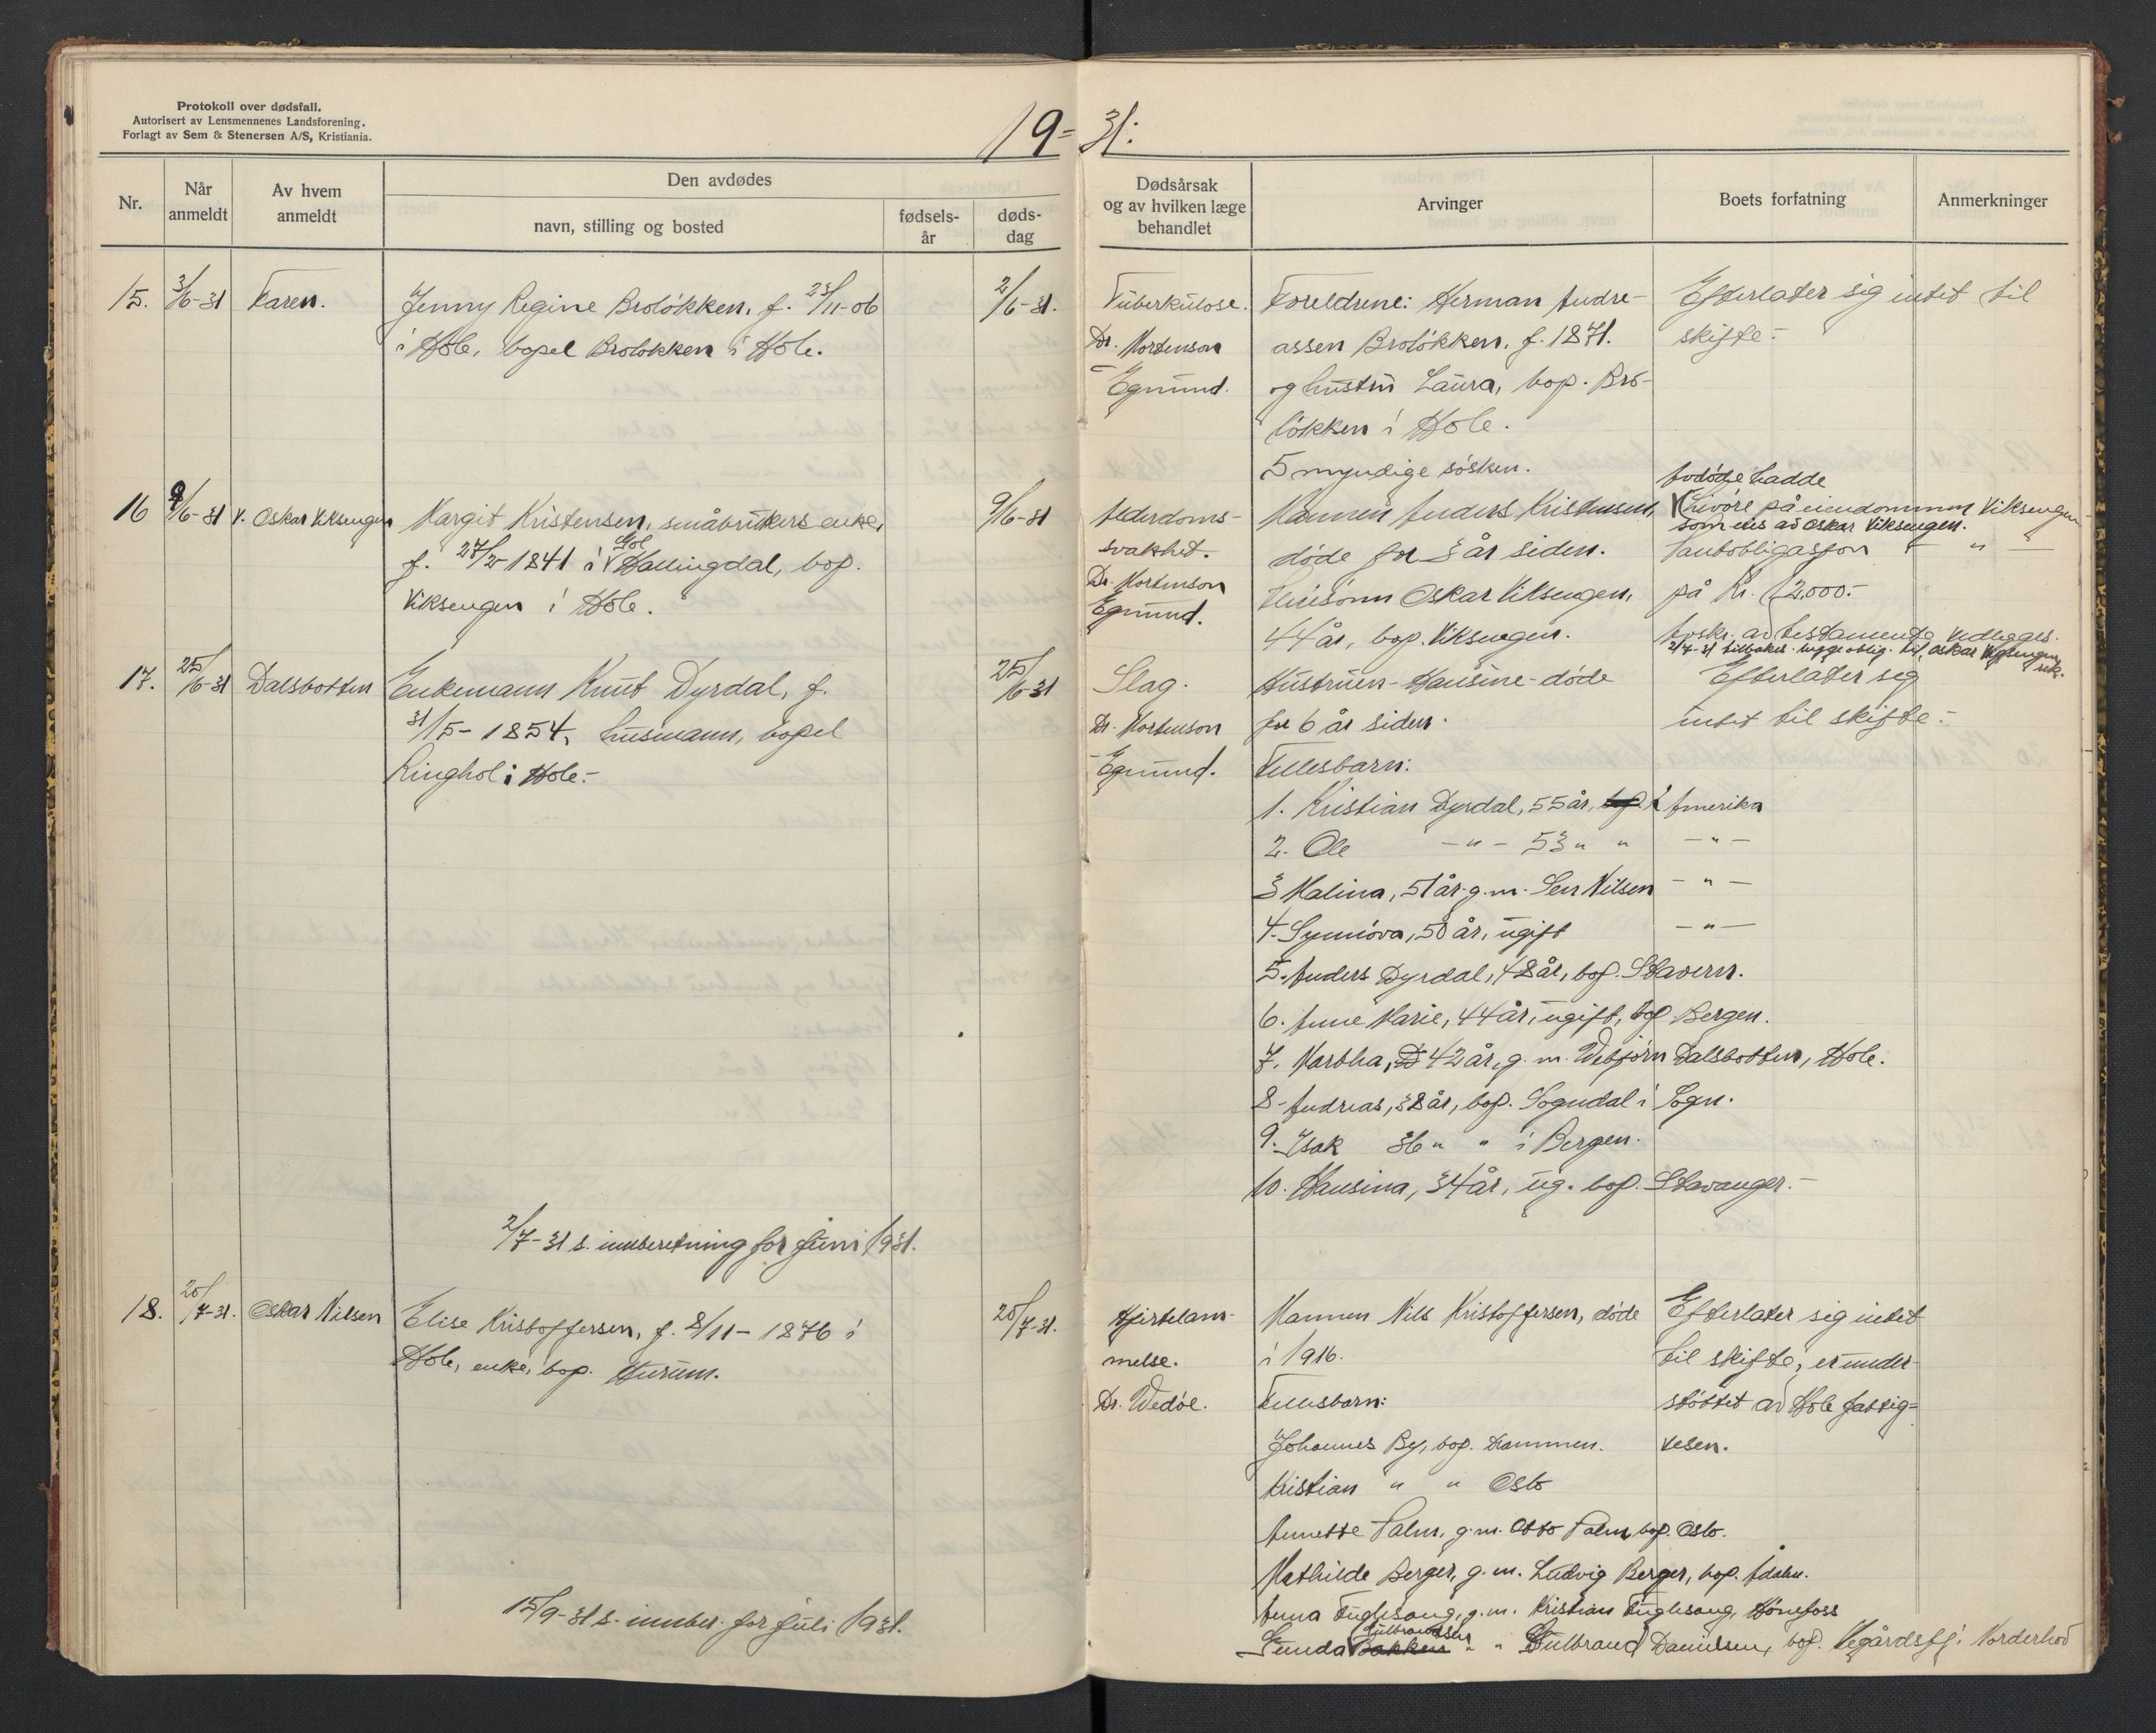 Protokoll over dødsfall.
Autorisert av Lensmennenes Landsforening.
Forlagt av Sem & Stenersen A/S, Kristiania.
19-31:
Nr.
Når anmeldt
Av hvem anmeldt
Den avdødes
navn, stilling og bosted
fødsels-år
døds-dag
Dødsårsak og av hvilken læge behandlet
Arvinger
Boets forfatning
Anmerkninger
15. 3/6-31 Faren.
Jenny Regine Broløkken, f. 23/11-06
i Hole, bopel Broløkken i Hole.
2/6-31.
Tuberkulose.
Dr. Mortenson
- Egmund.
Foreldrene: Herman Andre-
assen Broløkken, f. 1871.
og hustru Laura, bop. Bro-
løkken i Hole.
5 myndige søsken.
Efterlater sig intet til
skifte.-
16 9/6-31 v. Oskar Viksengen
Margit Kristensen, småbrukers enke,
f. 27/2-1841 i Gol Hallingdal, bop.
Viksengen i Hole.
9/6-31
Alderdoms-
svakhet.
Dr. Mortenson
Egmund.
Mannen Anders Kristensen,
døde for 3 år siden.
Sønn Oskar Viksengen,
44 år, bop. Viksengen.
Avdøde hadde
Livøre på eiendommen Viksengen
som eies av Oskar Viksengen.
Pantobligasjon - " -
på Kr. 2,000.-
Avskr. av testamente vedlegges.
2/7-31 tilbakes. begge oblig. til Oskar Viksengen
17. 25/6-31 Dalsbotten
Enkemann Knut Dyrdal, f.
31/5-1854, husmann, bopel
Ringhol i Hole.-
25/6-31
Slag.
Dr. Mortenson
- Egmund.
Hustruen - Hansine - døde
for 6 år siden.
Fellesbarn:
1. Kristian Dyrdal, 55 år, i Amerika
2. Ole - " - 53 " " - " -
3 Malina, 51 år g.m. Sen Nilsen - " -
4. Synnöva, 50 år, ugift - " -
5. Anders Dyrdal, 48 år, bop. Stavern.
6. Anne Marie, 44 år, ugift, bop Bergen.
7. Martha, 42 år, g.m. Vebjørn Dalsbotten, Hole.
8- Andreas, 38 år, bop. Sogndal i Sogn.
9. Isak 36 " " i Bergen.
10. Hansina, 34 år, ug. bop. Stavanger.-
Efterlater sig
intet til skifte.-
2/7-31 s. innberetning for juni 1931.
18. 20/7-31. Oskar Nilsen
Elise Kristoffersen, f. 8/11-1876 i
Hole, enke, bop. Hurum.
20/7-31.
Hjertelam-
melse.
Dr. Wedøe.
Mannen Nils Kristoffersen, døde
i 1916.
Fellesbarn:
Johannes By, bop. Drammen.
Kristian " " Oslo
Annette Palm, g.m. Otto Palm, bop. Oslo.
Mathilde Berger, g.m. Ludvig Berger, bop. Ådalen.
Anna Fuglesang, g.m. Kristian Fuglesang, Hönefoss
Gunda Bakken Gulbrandsen " " Gulbrand Danielsen, bop. Vegårdsfj. Norderhov
Efterlater sig intet
til skifte, er under-
støttet av Hole fattig-
vesen.
15/9-31 s. innber. for juli 1931.